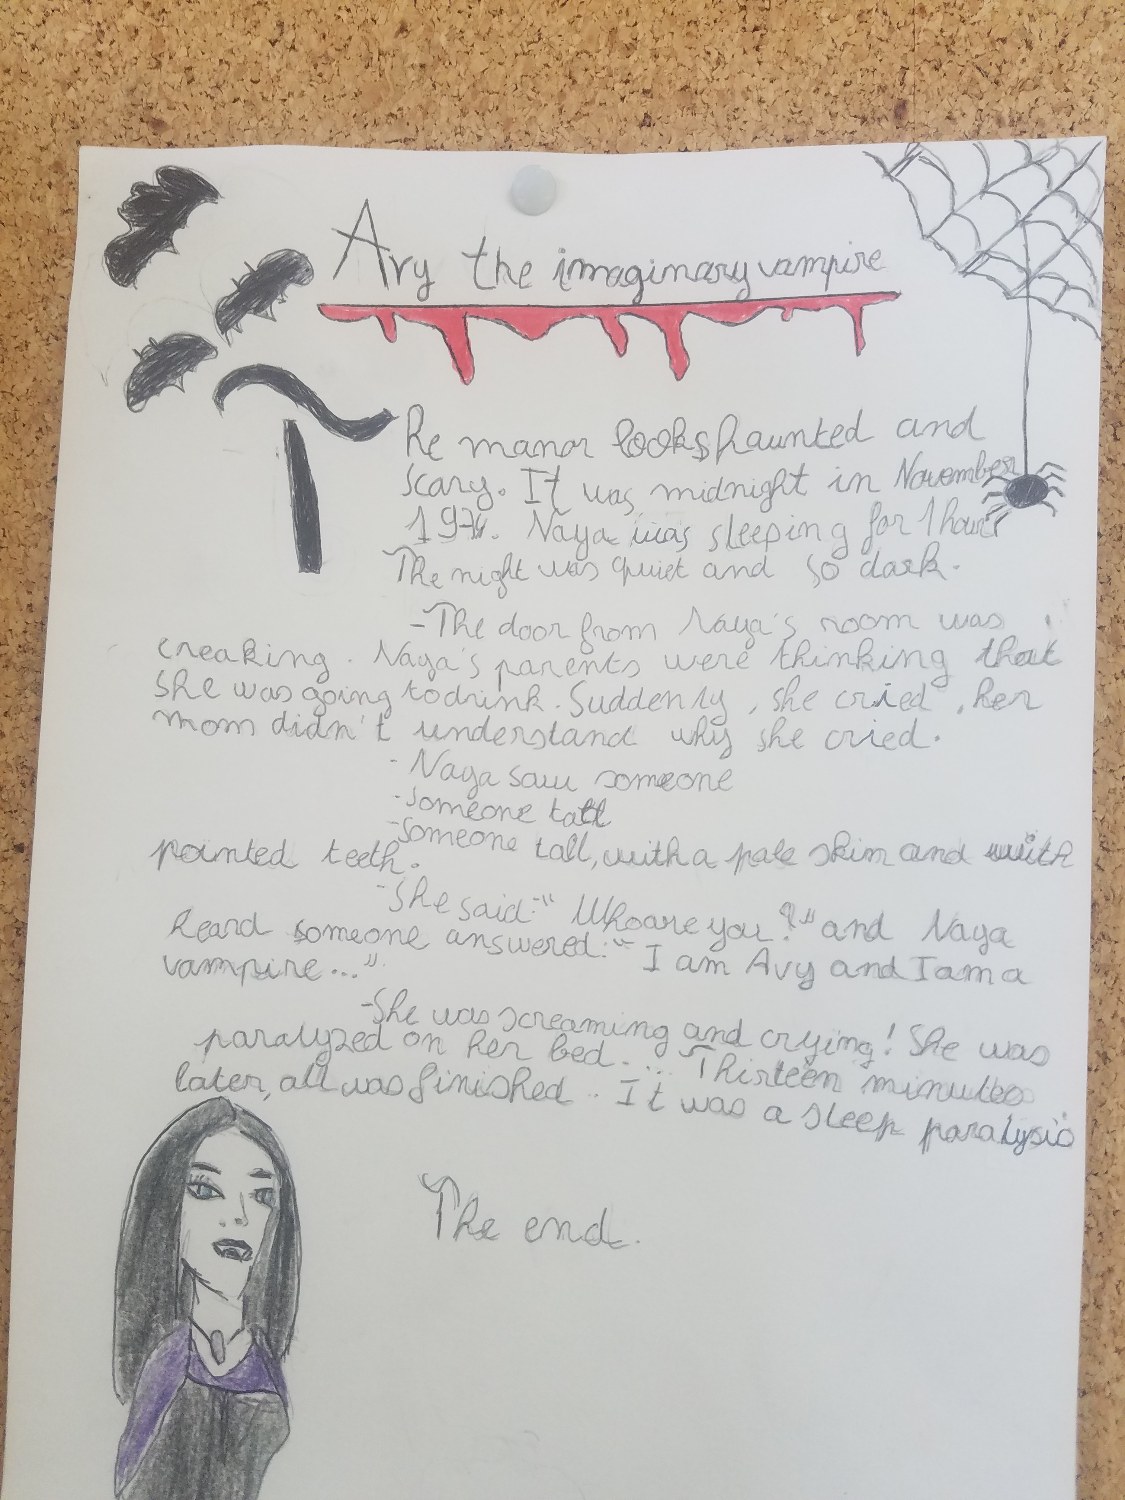 Avy the imaginary vampire
The manor looks haunted and
scary. It was midnight in November
Naya was sleeping for 1 hour
The night was quiet and so dark.
-The door from Naya's room was
creaking. Naya's parents were thinking that
she was going to drink. Suddenly, she cried, her
mom didn't understand why she cried.
- Naya saw someone
-someone tall
-someone tall, with a pale skin and with
pointed teeth.
-She said:" Who are you?" and Naya
heard someone answered:" I am Avy and I am a
vampire..."
-She was screaming and crying! She was
paralyzed on her bed.... Thirteen minutes
later, all was finished. It was a sleep paralysis
The end.